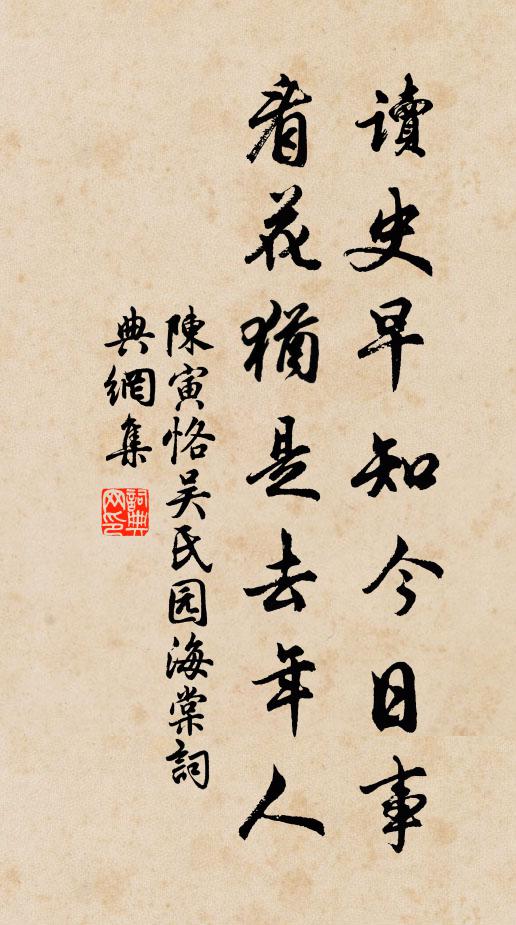 讀史早知今日事
看花猶是去年人
陳寅恪吴氏园海棠詞
典網集
詞典網印